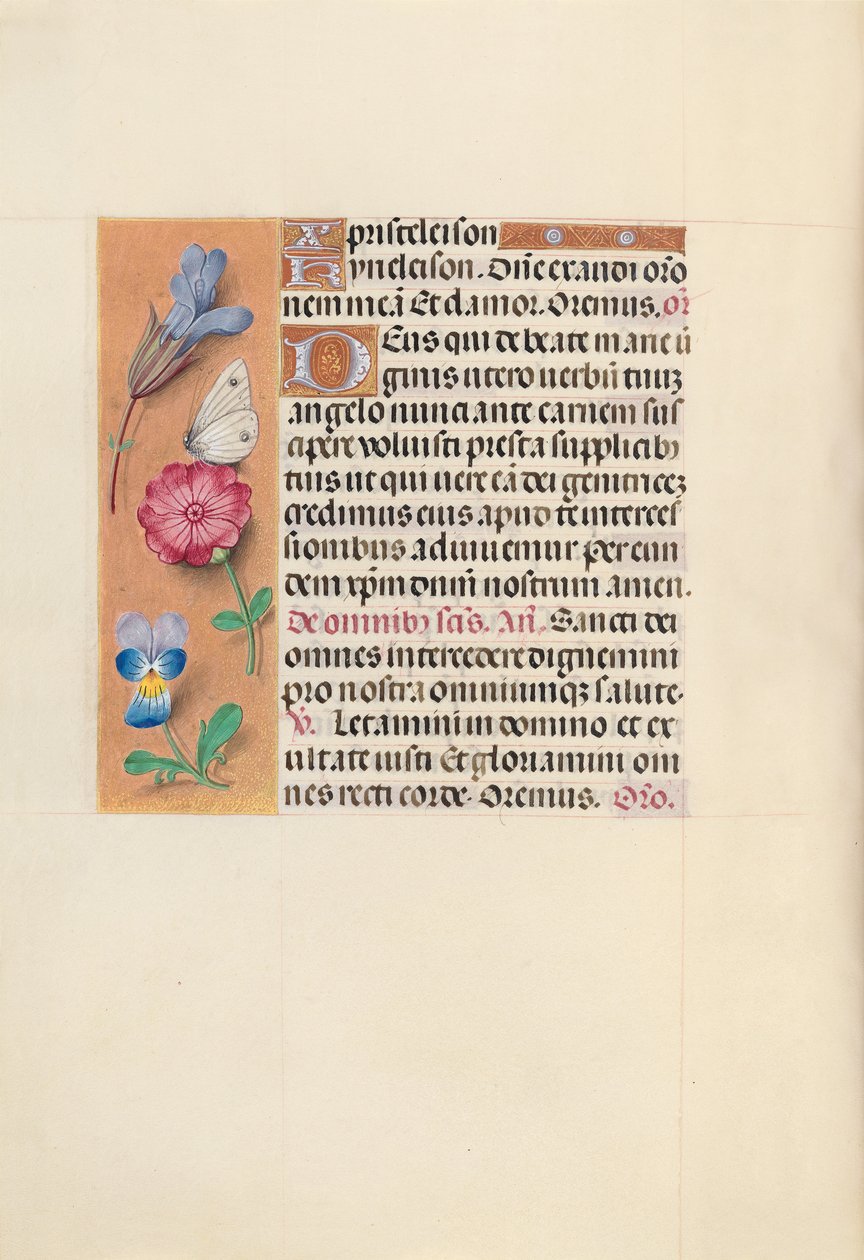 Xpristeleison
Kyrieleison. Dñe exaudi orõ
nem meã Et clamor. Oremus. or̃
Deus qui de beate marie ũ
ginis utero uerbũ tuuꝫ
angelo nunciante carnem sus
cipere voluisti presta supplicibꝫ
tuis ut qui uere eã dei genitriceꝫ
credimus eius apud te interces
sionibus adiuuemur per eun
dem xp̃m dnũm nostrum amen.
De omnibꝫ scĩs. Añ. Sancti dei
omnes intercedere dignemini
pro nostra omniumqꝫ salute.
v̇. Letamini in domino et ex
ultate iusti Et gloriamini om
nes recti corde. Oremus. Orõ.